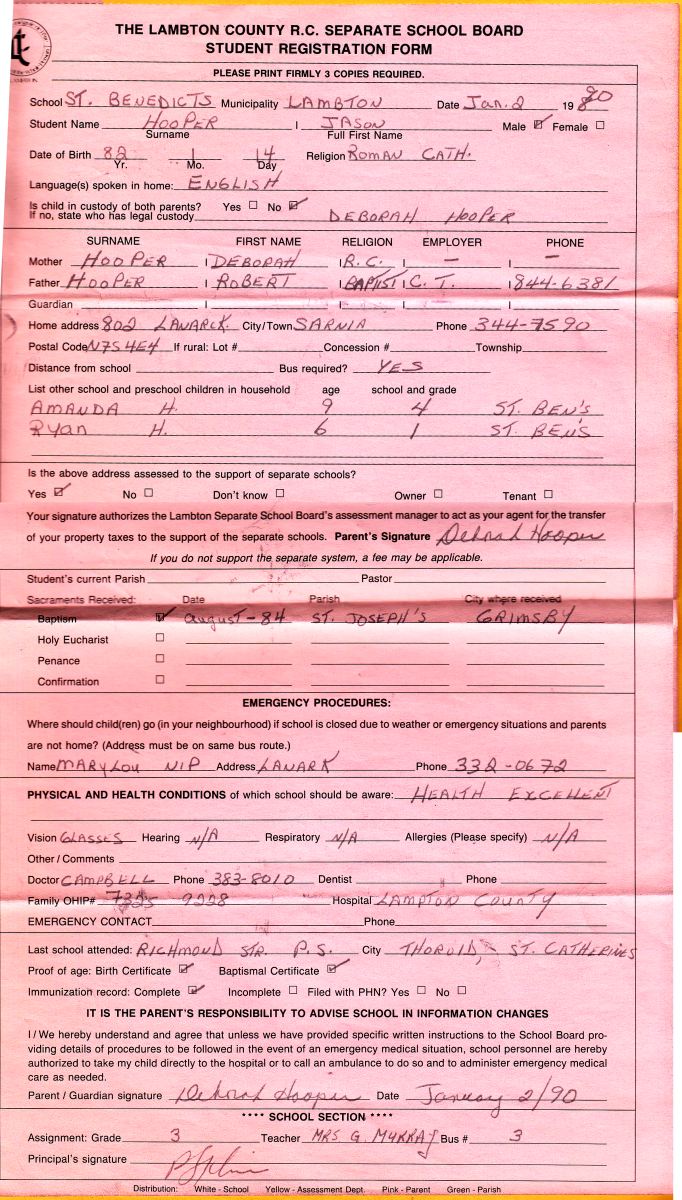 THE LAMBTON COUNTY R.C. SEPARATE SCHOOL BOARD
STUDENT REGISTRATION FORM
PLEASE PRINT FIRMLY 3 COPIES REQUIRED.
School ST. BENEDICTS Municipality LAMBTON Date Jan. 2 19 90
Student Name HOOPER JASON Male ☑ Female ☐
Surname Full First Name
Date of Birth 82 1 14 Religion ROMAN CATH.
Yr. Mo. Day
Language(s) spoken in home: ENGLISH
Is child in custody of both parents? Yes ☐ No ☑
If no, state who has legal custody DEBORAH HOOPER
SURNAME FIRST NAME RELIGION EMPLOYER PHONE
Mother HOOPER DEBORAH R.C. — —
Father HOOPER ROBERT BAPTIST C.T. 844-6381
Guardian
Home address 802 LANARCK. City/Town SARNIA Phone 344-7590
Postal Code N7S4E4 If rural: Lot # Concession # Township
Distance from school Bus required? YES
List other school and preschool children in household age school and grade
AMANDA H. 9 4 ST. BEN'S
RYAN H. 6 1 ST. BEN'S
Is the above address assessed to the support of separate schools?
Yes ☑ No ☐ Don't know ☐ Owner ☐ Tenant ☐
Your signature authorizes the Lambton Separate School Board's assessment manager to act as your agent for the transfer
of your property taxes to the support of the separate schools. Parent's Signature Deborah Hooper
If you do not support the separate system, a fee may be applicable.
Student's current Parish Pastor
Sacraments Received: Date Parish City where received
Baptism ☑ August-84 ST. JOSEPH'S GRIMSBY
Holy Eucharist ☐
Penance ☐
Confirmation ☐
EMERGENCY PROCEDURES:
Where should child(ren) go (in your neighbourhood) if school is closed due to weather or emergency situations and parents
are not home? (Address must be on same bus route.)
Name MARYLOU NIP Address LANARK Phone 332-0672
PHYSICAL AND HEALTH CONDITIONS of which school should be aware: HEALTH EXCELLENT
Vision GLASSES Hearing N/A Respiratory N/A Allergies (Please specify) N/A
Other / Comments
Doctor CAMPBELL Phone 383-8010 Dentist Phone
Family OHIP# 9228 Hospital LAMPTON COUNTY
EMERGENCY CONTACT Phone
Last school attended: RICHMOND STR. P.S. City THOROLD, ST. CATHERINES
Proof of age: Birth Certificate ☑ Baptismal Certificate ☑
Immunization record: Complete ☑ Incomplete ☐ Filed with PHN? Yes ☐ No ☐
IT IS THE PARENT'S RESPONSIBILITY TO ADVISE SCHOOL IN INFORMATION CHANGES
I / We hereby understand and agree that unless we have provided specific written instructions to the School Board pro-
viding details of procedures to be followed in the event of an emergency medical situation, school personnel are hereby
authorized to take my child directly to the hospital or to call an ambulance to do so and to administer emergency medical
care as needed.
Parent / Guardian signature Deborah Hooper Date January 2/90
**** SCHOOL SECTION ****
Assignment: Grade 3 Teacher MRS G. MURRAY Bus # 3
Principal's signature
Distribution: White - School Yellow - Assessment Dept. Pink - Parent Green - Parish